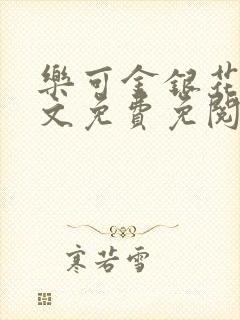 樂可金銀花
文免費免閱
寒若雪